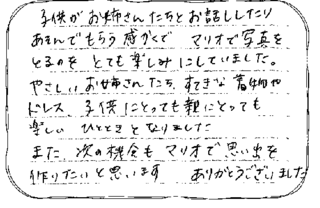 子供がお姉さんたちとお話ししたり
あそんでもらう感かくで マリオで写真を
とるのを とても楽しみにしていました。
やさしいお姉さんたち、すてきな着物や
ドレス、子供にとっても親にとっても
楽しい ひとときとなりました
また、次の機会も マリオで思い出を
作りたいと思います ありがとうございました